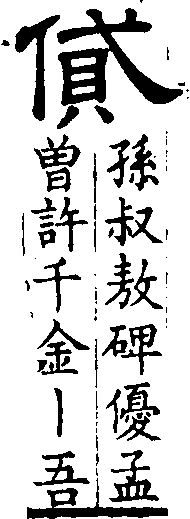 貸
孫叔敖碑優孟
曾許千金丨吾